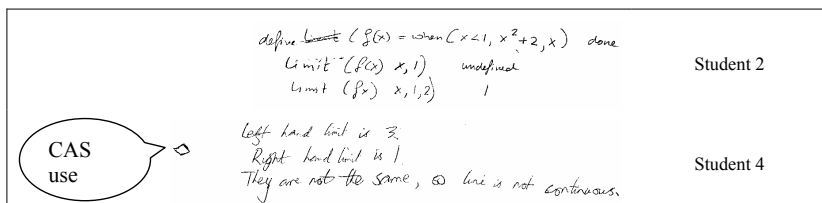 define ~~limit~~ (f(x) = when (x<1, x²+2, x) done
Limit (f(x) x, 1) undefined
Limit (fx) x, 1, 2) 1
Student 2
CAS
use
Left hand limit is 3.
Right hand limit is 1.
They are not the same, so line is not continuous.
Student 4